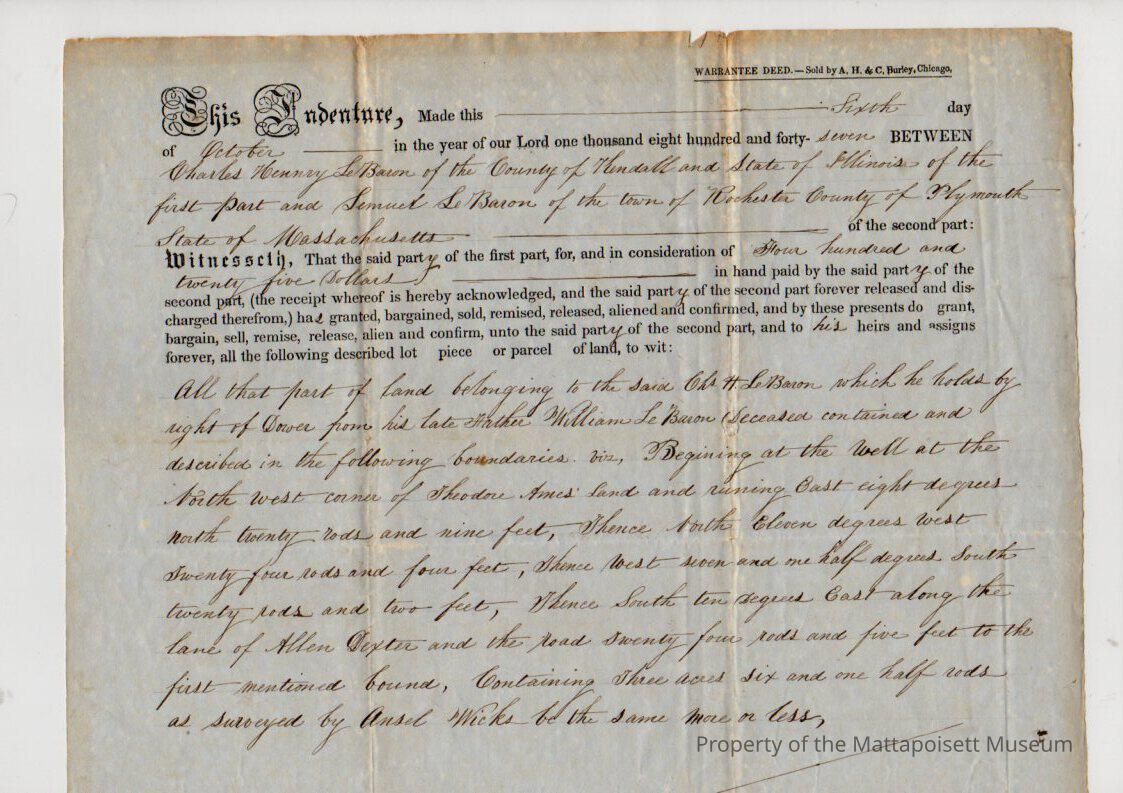 WARRANTEE DEED.—Sold by A. H. & C. Burley, Chicago,
This Indenture, Made this Sixth day
of October in the year of our Lord one thousand eight hundred and forty-seven BETWEEN
Charles Hennry LeBaron of the County of Kendall and State of Illinois of the
first Part and Lemuel LeBaron of the town of Rochester County of Plymouth
State of Massachusetts of the second part:
Witnesseth, That the said party of the first part, for, and in consideration of Four hundred and
twenty five Dollars in hand paid by the said party of the
second part, (the receipt whereof is hereby acknowledged, and the said party of the second part forever released and dis-
charged therefrom,) has granted, bargained, sold, remised, released, aliened and confirmed, and by these presents do grant,
bargain, sell, remise, release, alien and confirm, unto the said party of the second part, and to his heirs and assigns
forever, all the following described lot piece or parcel of land, to wit:
All that part of land belonging to the said Chs H LeBaron which he holds by
right of Dower from his late Father William LeBaron Deceased contained and
described in the following boundaries. viz, Begining at the Well at the
North west corner of Theodore Ames' land and runing East eight degrees
north twenty rods and nine feet, Thence North Eleven degrees West
Twenty four rods and four feet, Thence West seven and one half degrees South
twenty rods and two feet, Thence South ten Degrees East along the
lane of Allen Dexter and the road Twenty four rods and five feet to the
first mentioned bound, Containing Three acres six and one half rods
as surveyed by Ansel Wicks be the same more or less,
Property of the Mattapoisett Museum